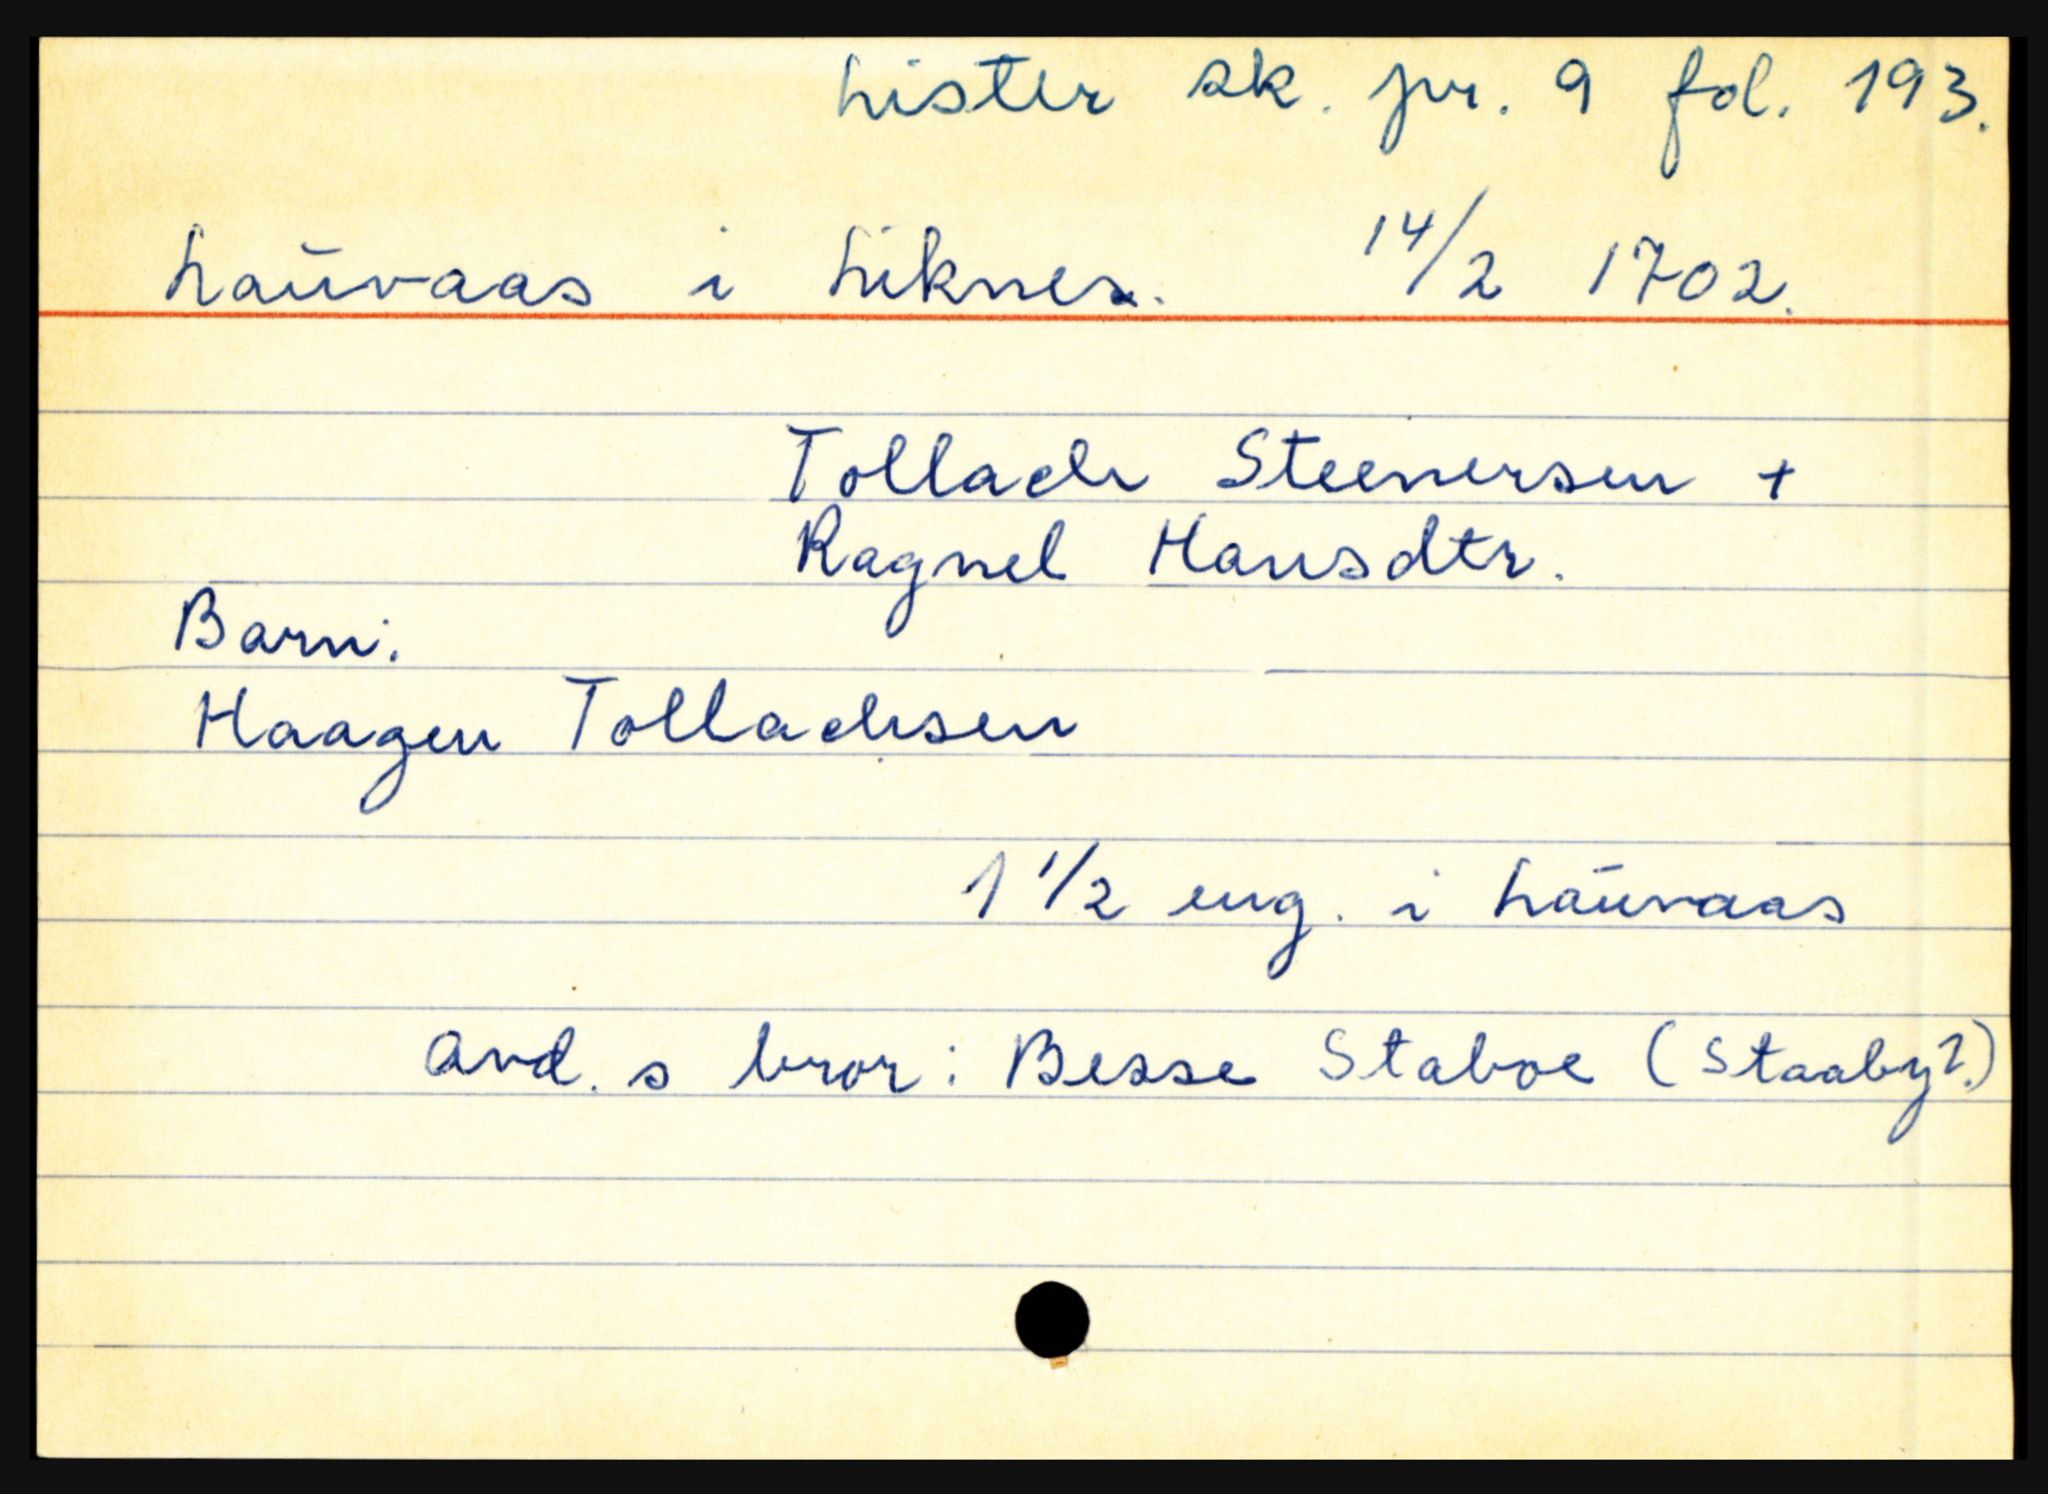 Lister sk. pr. 9 fol. 193.
Lauvaas i Liknes. 14/2 1702.
Tollach Steenersen +
Ragnel Hansdtr.
Barn:
Haagen Tollachsen
1 1/2 eng. i Lauvaas
Avd. s bror: Besse Staboe (Staaby?)